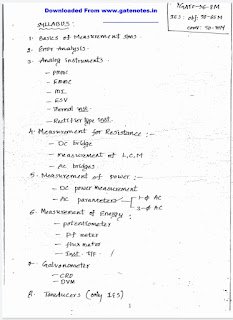 Downloaded From www.gatenotes.in
SYLLABUS :
1- Basics of Measurement
2- Error Analysis
3- Analog Instruments
- PMMC
- EMMC
- MI
- ESV
- Thermal inst.
- Rectifier type inst.
4- Measurement for Resistance :-
- DC bridge
- measurement of L, C, M
- AC bridges
5- Measurement of power :-
- DC power measurement
- AC parameters 1-ϕ AC
3-ϕ AC
6- Measurement of Energy :
- potentiometer
- Pf meter
- flux meter
- Inst. T/F
7- Galvanometer
- CRO
- DVM
8. Transducers (only IES)